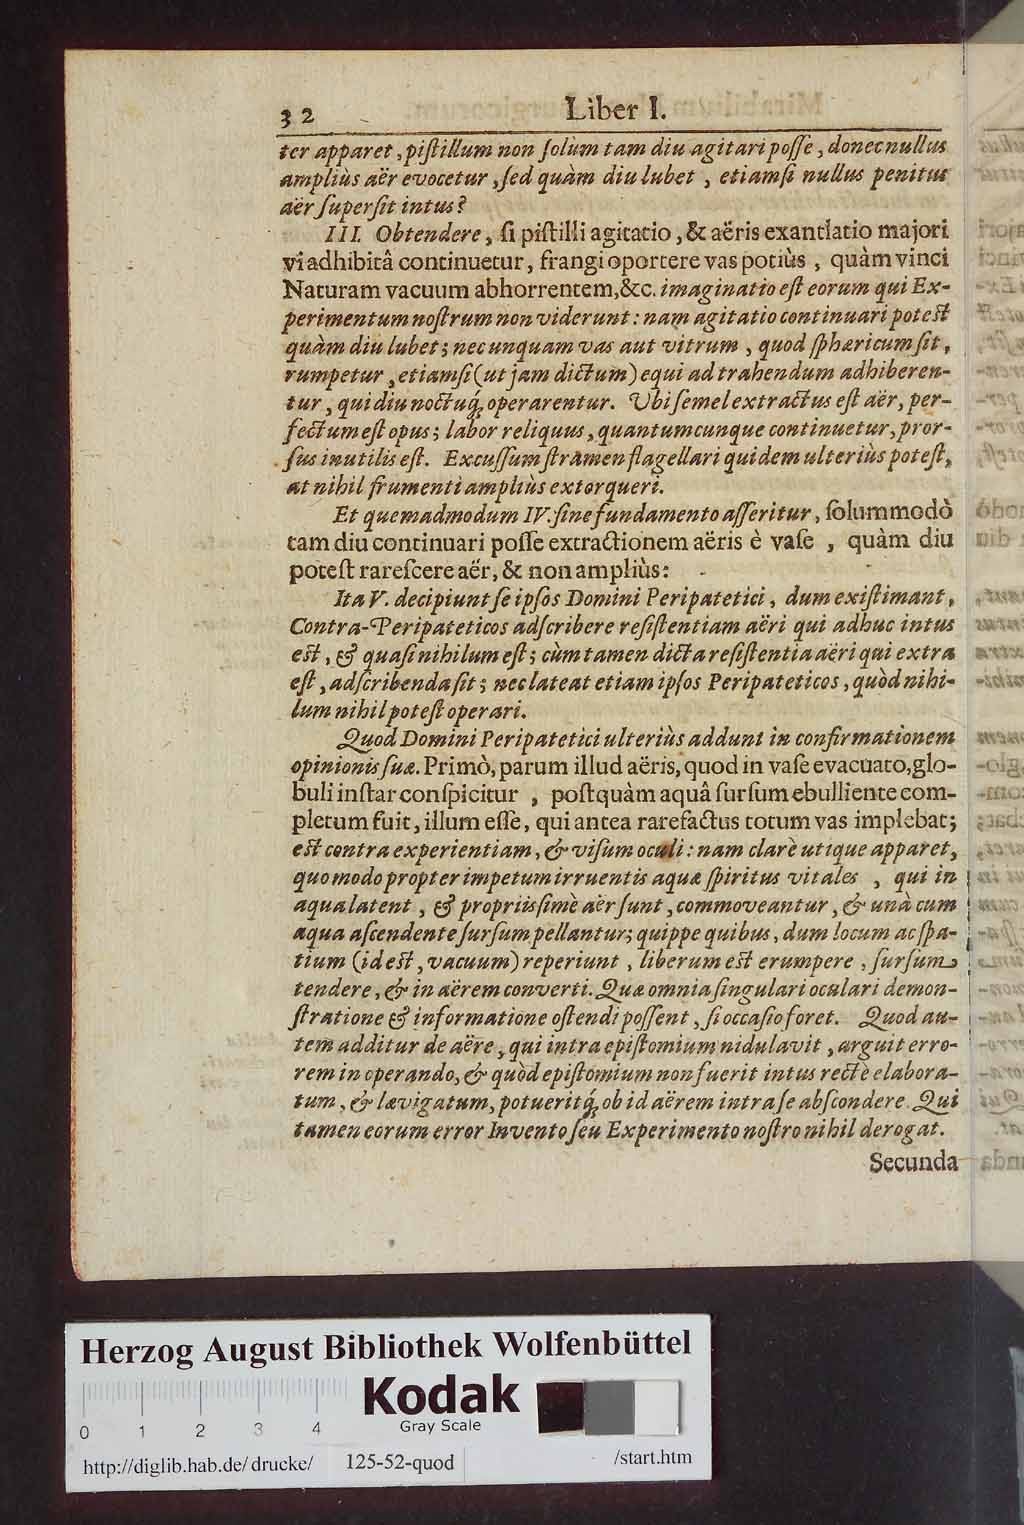 32 Liber I.
ter apparet, piſtillum non ſolùm tam diu agitari poſſe, donec nullus
ampliùs aër evocetur, ſed quàm diu lubet, etiamſi nullus penitus
aër ſuperſit intus?
III. Obtendere, ſi piſtilli agitatio, & aëris exantlatio majori
vi adhibitâ continuetur, frangi oportere vas potiùs, quàm vinci
Naturam vacuum abhorrentem, &c. imaginatio eſt eorum qui Ex-
perimentum noſtrum non viderunt: nam agitatio continuari poteſt
quàm diu lubet; nec unquam vas aut vitrum, quod ſphæricum ſit,
rumpetur, etiamſi (ut jam dictum) equi ad trahendum adhiberen-
tur, qui diu noctuq́; operarentur. Ubi ſemel extractus eſt aër, per-
fectum eſt opus; labor reliquus, quantumcunque continuetur, pror-
ſus inutilis eſt. Excuſſum ſtramen flagellari quidem ulteriùs poteſt,
at nihil frumenti ampliùs extorqueri.
Et quemadmodum IV. ſine fundamento aſſeritur, ſolummodò
tam diu continuari poſſe extractionem aëris è vaſe, quàm diu
poteſt rareſcere aër, & non ampliùs:
Ita V. decipiunt ſe ipſos Domini Peripatetici, dum exiſtimant,
Contra-Peripateticos adſcribere reſiſtentiam aëri qui adhuc intus
eſt, & quaſi nihilum eſt; cùm tamen dicta reſiſtentia aëri qui extra
eſt, adſcribenda ſit; nec lateat etiam ipſos Peripateticos, quòd nihi-
lum nihil poteſt operari.
Quod Domini Peripatetici ulteriùs addunt in confirmationem
opinionis ſuæ. Primò, parum illud aëris, quod in vaſe evacuato, glo-
buli inſtar conſpicitur, poſtquàm aquâ ſurſum ebulliente com-
pletum fuit, illum eſſe, qui antea rarefactus totum vas implebat;
eſt contra experientiam, & viſum oculi: nam clarè utique apparet,
quomodo propter impetum irruentis aquæ ſpiritus vitales, qui in
aqua latent, & propriiſſimè aër ſunt, commoveantur, & unà cum
aqua aſcendente ſurſum pellantur; quippe quibus, dum locum ac ſpa-
tium (id eſt, vacuum) reperiunt, liberum eſt erumpere, ſurſum
tendere, & in aërem converti. Quæ omnia ſingulari oculari demon-
ſtratione & informatione oſtendi poſſent, ſi occaſio foret. Quod au-
tem additur de aëre, qui intra epiſtomium nidulavit, arguit erro-
rem in operando, & quòd epiſtomium non fuerit intus rectè elabora-
tum, & lævigatum, potueritq́; ob id aërem intra ſe abſcondere. Qui
tamen eorum error Invento ſeu Experimento noſtro nihil derogat.
Secunda
Herzog August Bibliothek Wolfenbüttel
Kodak
Gray Scale
0 1 2 3 4
http://diglib.hab.de/drucke/ 125-52-quod /start.htm